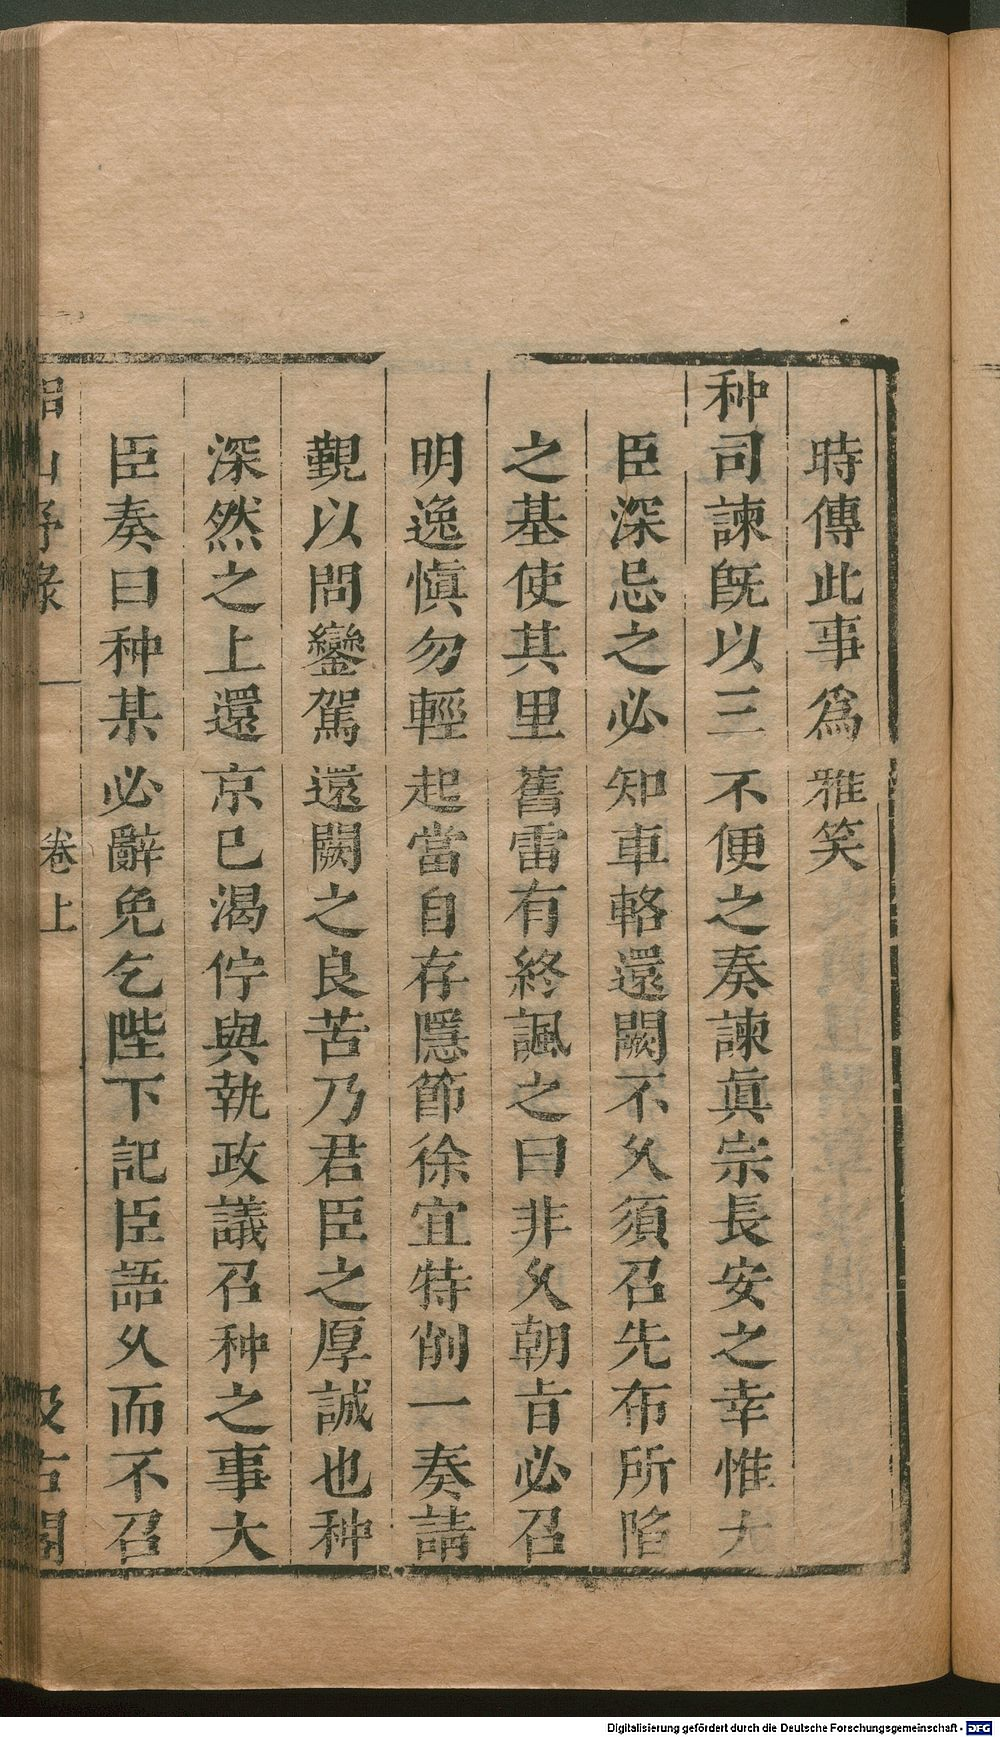 時傳此事爲雅笑
种司諫旣以三不便之奏諫眞宗長安之幸惟大
臣深忌之必知車輅還闕不久須召先布所陷
之基使其里舊雷有終諷之曰非久朝旨必召
明逸愼勿輕起當自存隱節徐宜特削一奏請
觀以問鑾駕還闕之良苦乃君臣之厚誠也种
深然之上還京已渴佇與執政議召种之事大
臣奏曰种某必辭免乞陛下記臣語久而不召
湘山野錄 卷上 汲古閣
Digitalisierung gefördert durch die Deutsche Forschungsgemeinschaft - DFG